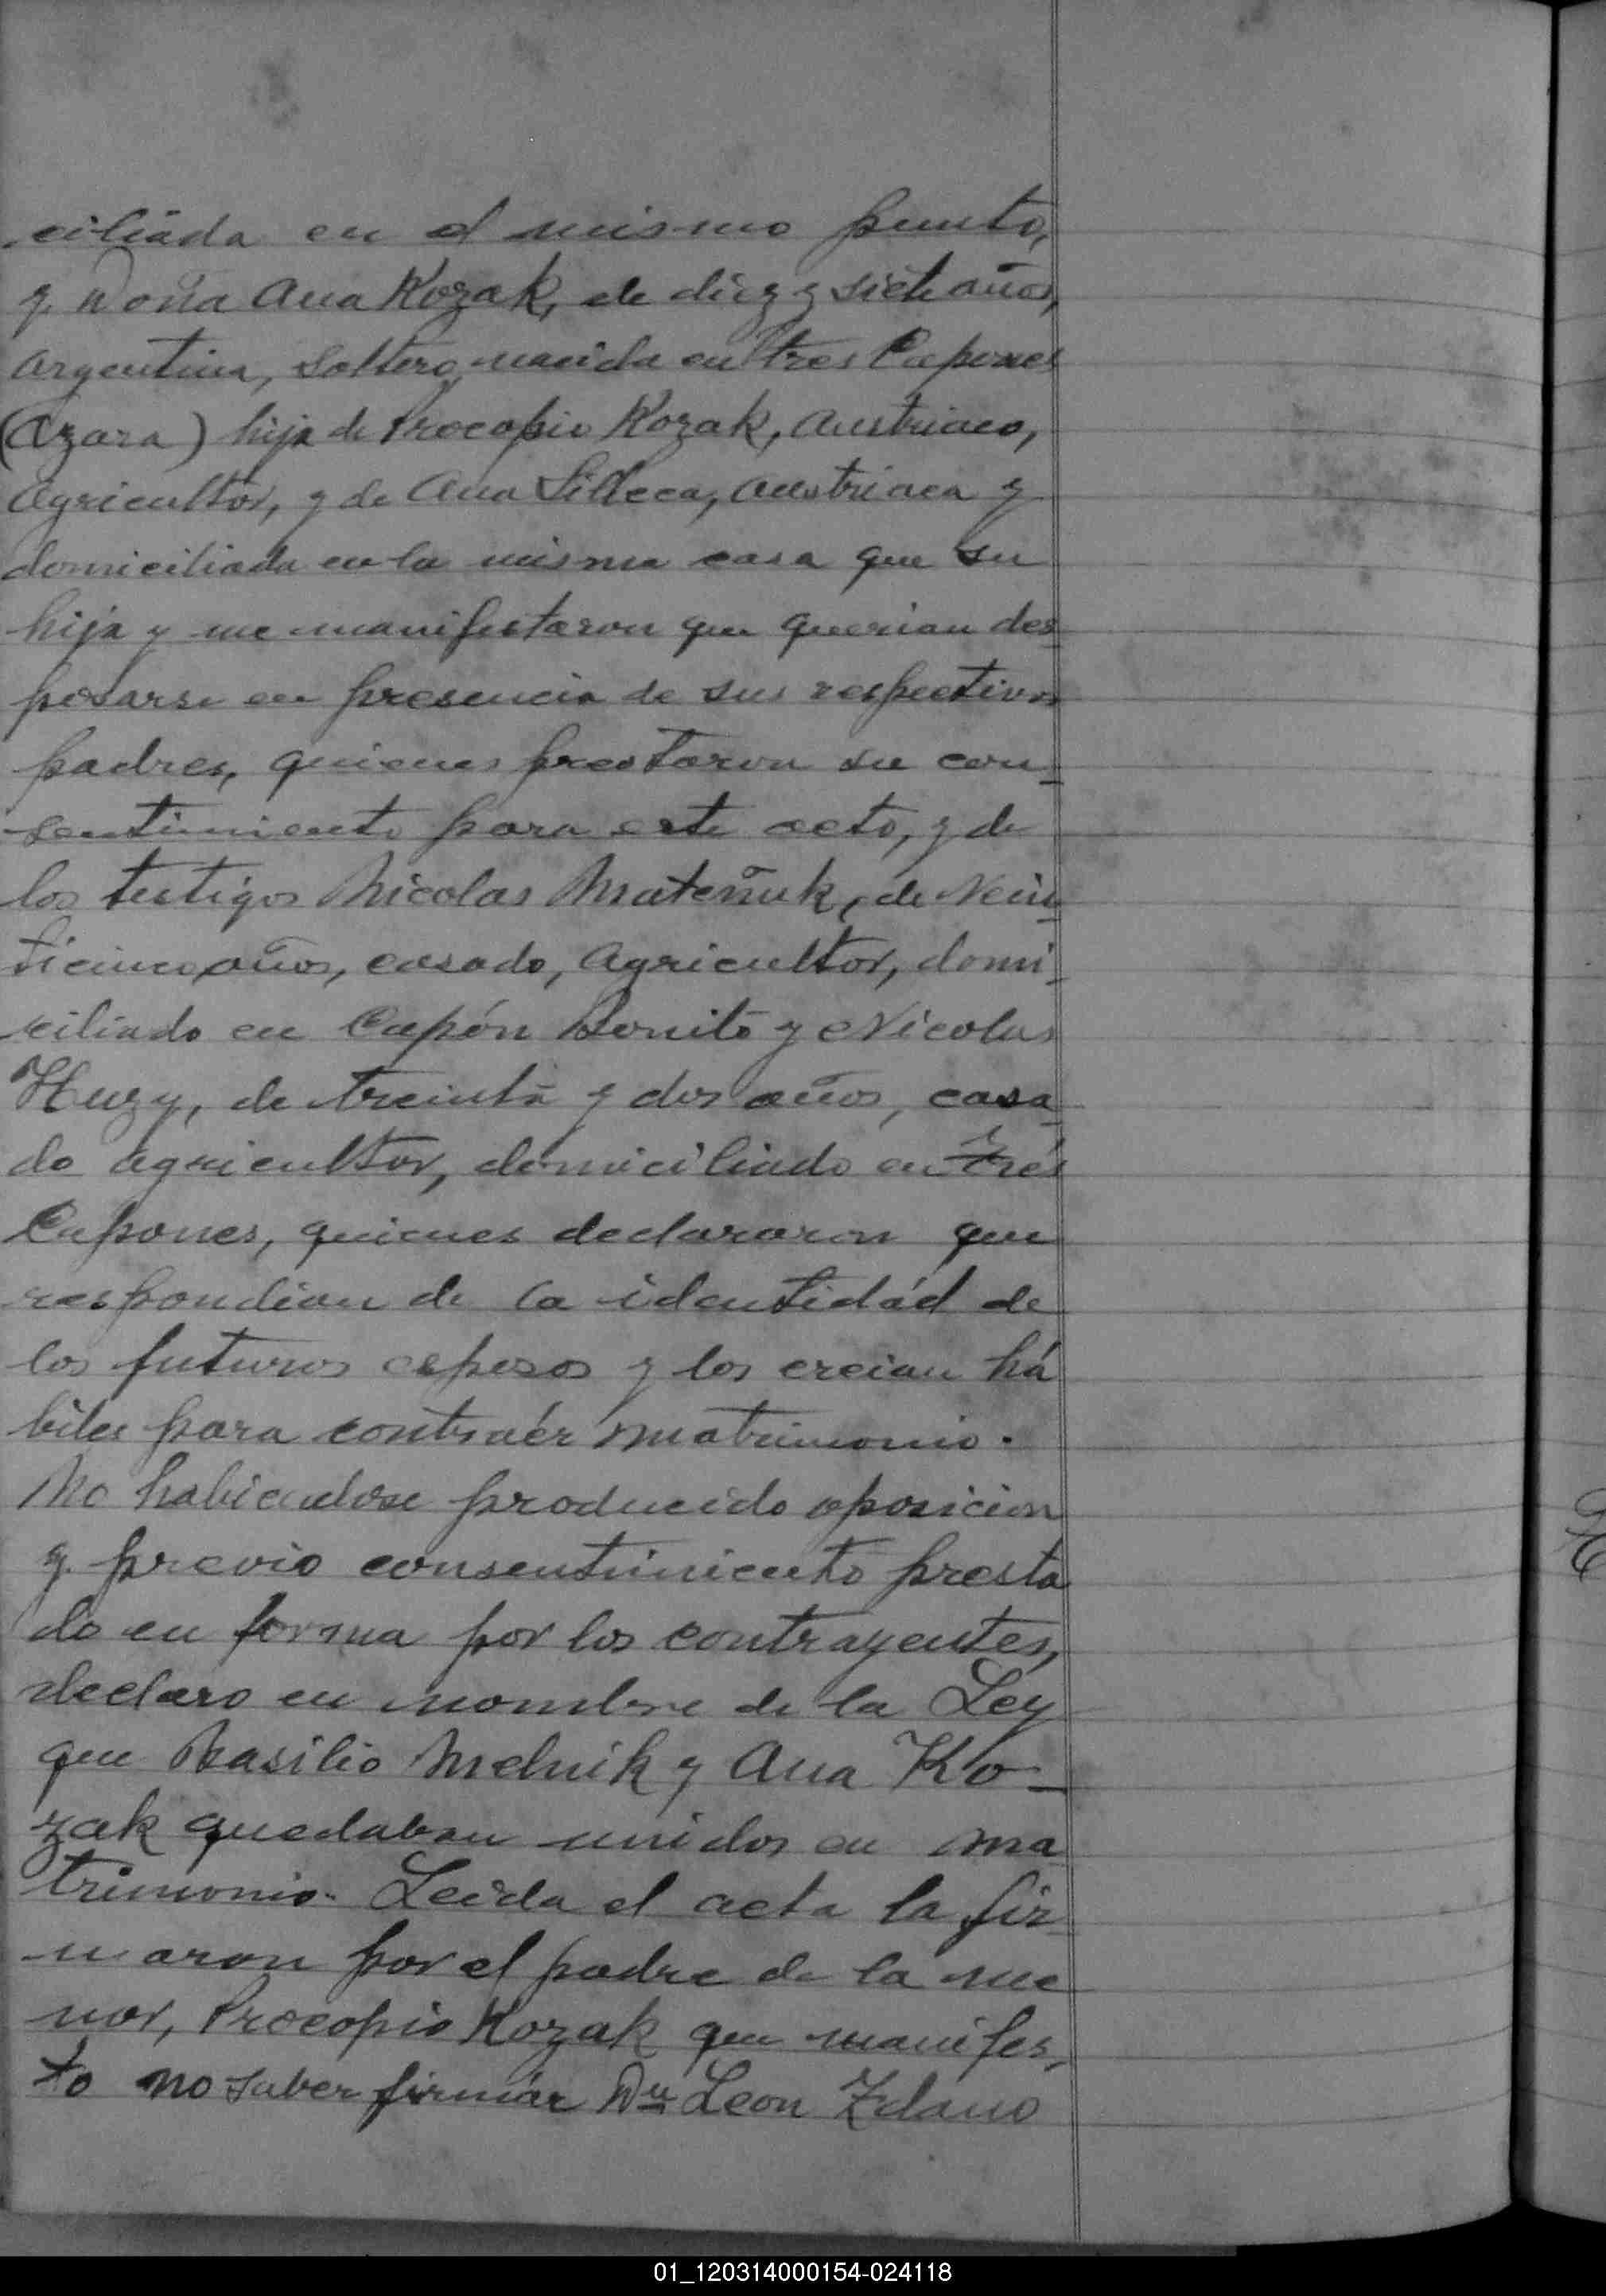 ciliada en el mismo punto,
y Doña Ana Kozak, de diez y siete años,
Argentina, Soltera, nacida en Tres Capones
(Azara) hija de Procopio Kozak, Austriaco,
Agricultor, y de Ana, Austriaca y
domiciliada en la misma casa que su
hija y me manifestaron que querian des
posarse en presencia de sus respectivos
padres, quienes prestaron su con-
sentimiento para este acto, y de
los testigos Nicolas Mateñuk, de Vein-
ticinco años, casado, Agricultor, domi-
ciliado en Capón Bonito y Nicolas
Huzy, de treinta y dos años, casa-
do agricultor, domiciliado en Tres
Capones, quienes declararon que
respondian de la identidád de
los futuros esposos y los creian há
biles para contraér matrimonio.
No habiendose producido oposicion
y previo consentimiento presta
do en forma por los contrayentes,
declaro en nombre de la Ley
que Basilio Melnik y Ana Ko-
zak quedaban unidos en ma
trimonio. Leida el acta la fir-
maron por el padre de la me
nor, Procopio Kozak que manifes-
to no saber firmár Dn Leon Zdano
01_120314000154-024118